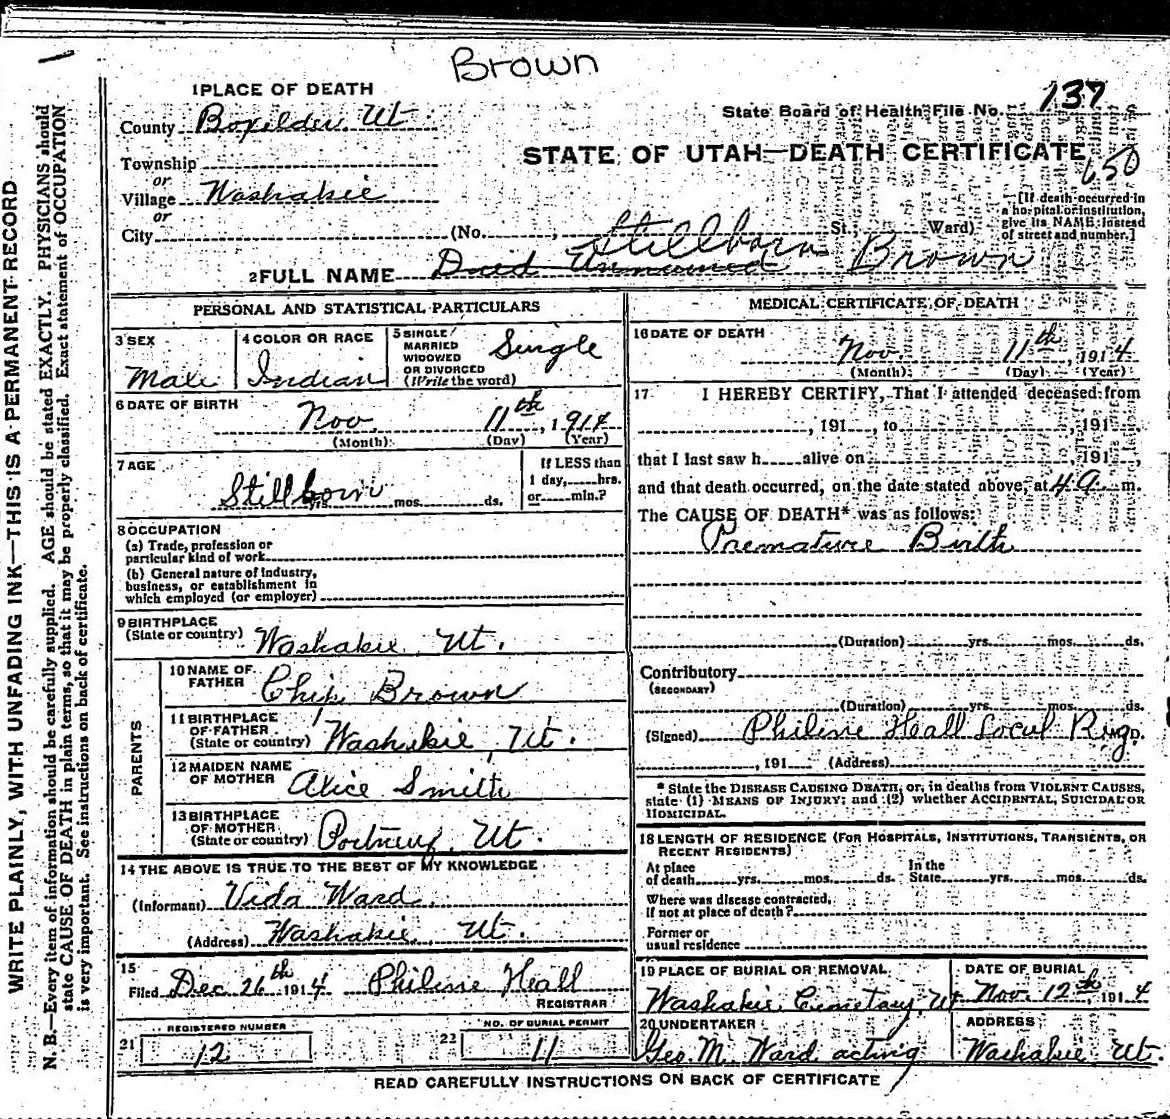 Brown
1 PLACE OF DEATH
State Board of Health File No. 137
County Boxelder Ut.
STATE OF UTAH—DEATH CERTIFICATE
650
Township
or
Village Washakie
or
[If death occurred in
a hospital or institution,
give its NAME instead
of street and number.]
City (No. , St., Ward)
Stillborn
2 FULL NAME Died Unnamed Brown
PERSONAL AND STATISTICAL PARTICULARS
3 SEX
Male
4 COLOR OR RACE
Indian
5 SINGLE
MARRIED
WIDOWED
OR DIVORCED
(Write the word)
Single
6 DATE OF BIRTH
Nov 11th, 1914
(Month) (Day) (Year)
7 AGE
Stillborn
yrs. mos. ds.
If LESS than
1 day, hrs.
or min.?
8 OCCUPATION
(a) Trade, profession or
particular kind of work
(b) General nature of Industry,
business, or establishment in
which employed (or employer)
9 BIRTHPLACE
(State or country) Washakie, Ut.
PARENTS
10 NAME OF
FATHER Chip Brown
11 BIRTHPLACE
OF FATHER
(State or country) Washakie, Ut.
12 MAIDEN NAME
OF MOTHER Alice Smith
13 BIRTHPLACE
OF MOTHER
(State or country) Portneuf, Ut.
14 THE ABOVE IS TRUE TO THE BEST OF MY KNOWLEDGE
(Informant) Vida Ward
(Address) Washakie, Ut.
15
Filed Dec 26th 1914 Philine Heall
REGISTRAR
REGISTERED NUMBER
21 12
NO. OF BURIAL PERMIT
22 11
MEDICAL CERTIFICATE OF DEATH
16 DATE OF DEATH
Nov 11th, 1914
(Month) (Day) (Year)
17 I HEREBY CERTIFY, That I attended deceased from
, 191 , to , 191 ,
that I last saw h alive on , 191 ,
and that death occurred, on the date stated above, at 4 a. m.
The CAUSE OF DEATH* was as follows:
Premature Birth
(Duration) yrs. mos. ds.
Contributory
(SECONDARY)
(Duration) yrs. mos. ds.
(Signed) Philine Heall Local Reg. D.
, 191 (Address)
* State the DISEASE CAUSING DEATH, or, in deaths from VIOLENT CAUSES,
state (1) MEANS OF INJURY; and (2) whether ACCIDENTAL, SUICIDAL OR
HOMICIDAL.
18 LENGTH OF RESIDENCE (FOR HOSPITALS, INSTITUTIONS, TRANSIENTS, OR
RECENT RESIDENTS)
At place
of death yrs. mos. ds.
In the
State yrs. mos. ds.
Where was disease contracted,
if not at place of death?
Former or
usual residence
19 PLACE OF BURIAL OR REMOVAL
Washakie Cemetary, Ut
DATE OF BURIAL
Nov. 12th, 1914
20 UNDERTAKER
Geo. M. Ward acting
ADDRESS
Washakie Ut.
READ CAREFULLY INSTRUCTIONS ON BACK OF CERTIFICATE
WRITE PLAINLY, WITH UNFADING INK—THIS IS A PERMANENT RECORD
N. B.—Every item of information should be carefully supplied. AGE should be stated EXACTLY. PHYSICIANS should
state CAUSE OF DEATH in plain terms, so that it may be properly classified. Exact statement of OCCUPATION
is very important. See instructions on back of certificate.